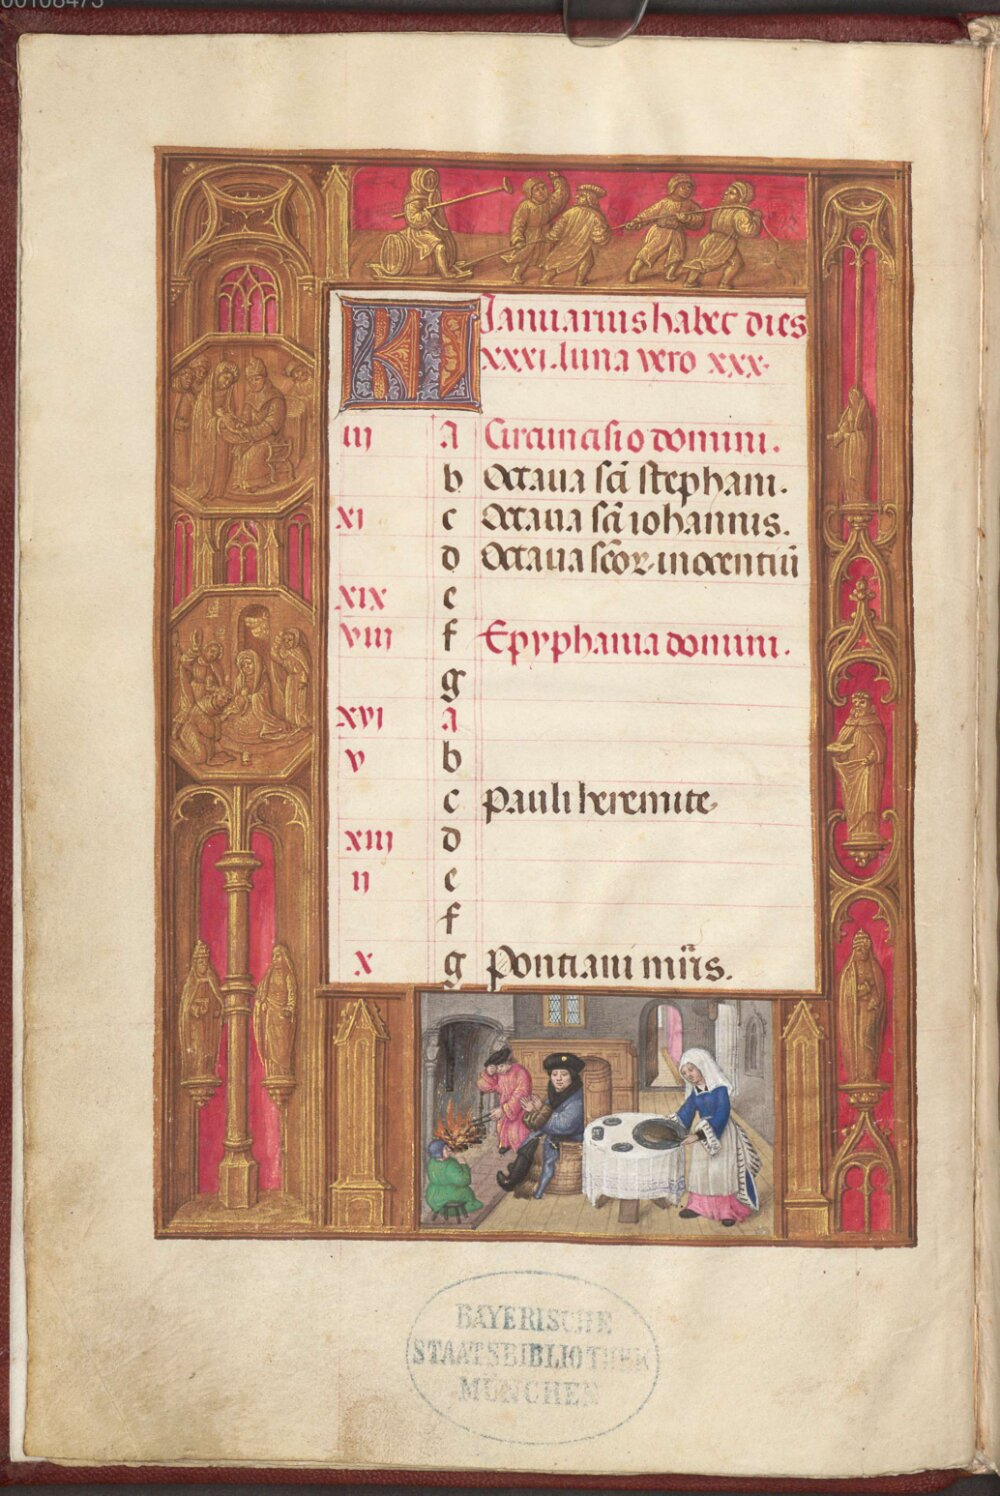 00108473
KL Januarius habet dies
xxxi. luna vero xxx.
iii a Circumcisio domini.
b Octava scī stephani.
xi c Octava scī iohannis.
d Octava scōꝝ inocentiū
xix e
viii f Epyphania domini.
g
xvi a
v b
c Pauli heremite.
xiii d
ii e
f
x g Pontiani mr̄is.
BAYERISCHE
STAATSBIBLIOTHEK
MÜNCHEN